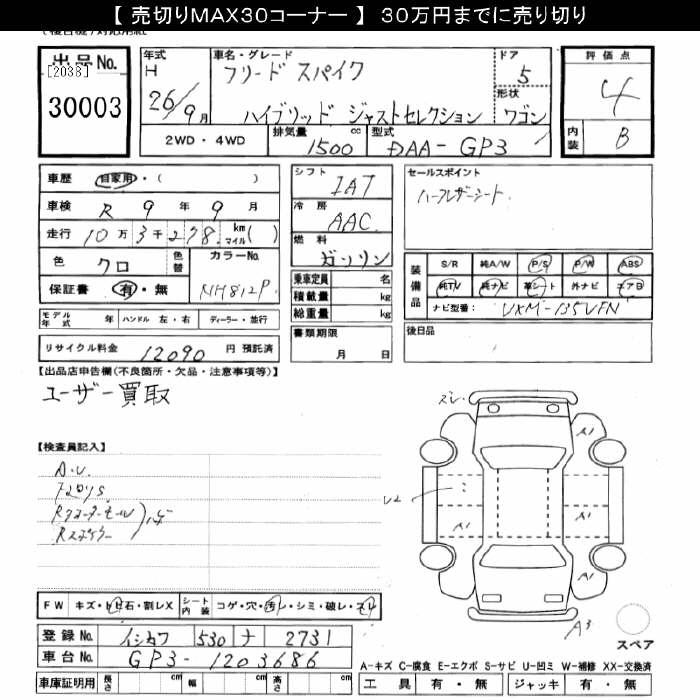 【 売切りMAX30コーナー 】 30万円までに売り切り
出品No.
[2038]
30003
年式
H
26/9月
車名・グレード
フリード スパイク
ハイブリッド ジャストセレクション
ドア
5
形状
ワゴン
評価点
4
内装
B
2WD・4WD
排気量
1500
cc
型式
DAA-GP3
車歴
自家用・( )
車検
R 9 年 9 月
走行
10万3千278.
km
マイル( )
色
クロ
色替
カラーNo.
NH812P
保証書
有・無
モデル年式
年
ハンドル 左・右
ディーラー・並行
リサイクル料金
12090
円 預託済
シフト
IAT
冷房
AAC
燃料
ガソリン
乗車定員
名
積載量
kg
総重量
kg
書類期限
月 日
セールスポイント
ハーフレザーシート
装備品
S/R
純A/W
P/S
P/W
ABS
純TV
純ナビ
革シート
外ナビ
エアB
ナビ型番:
VXM-135VFN
後日品
【出品店申告欄(不良箇所・欠品・注意事項等)】
ユーザー買取
【検査員記入】
FW
キズ・ヒビ石・割レX
シート内装
コゲ・穴・汚レ・シミ・破レ・スレ
登録No.
イシカワ 530 ナ 2731
車台No.
GP3-1203686
車庫証明用
長さ
cm
幅
cm
高さ
cm
A1
A1
U2
A1
A1
A1
A3
スペア
A-キズ C-腐食 E-エクボ S-サビ U-凹ミ W-補修 XX-交換済
工具
有・無
ジャッキ
有・無